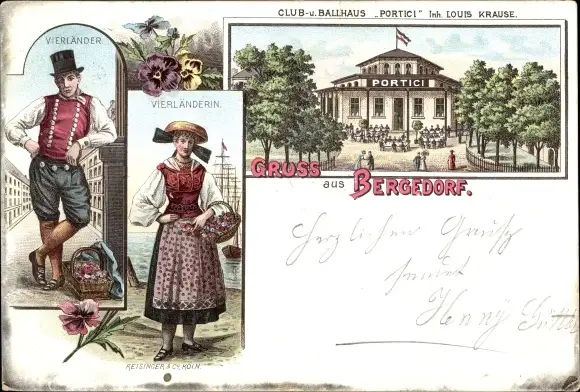 CLUB- u. BALLHAUS „PORTICI” Inh. LOUIS KRAUSE.
VIERLÄNDER.
VIERLÄNDERIN.
PORTICI
GRUSS
aus BERGEDORF.
Herzlichen Gruß
sendet
Henny
REISINGER & Co, KÖLN.